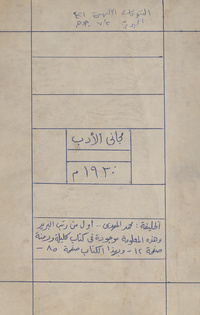 مجانى الأدب
١٩٢٠ م
الخليفة: محمد المهدى.. أول من رتب البريد
وهذه المعلومة موجودة فى كتاب كليلة ودمنة
صفحة ١٢ - وبهذا الكتاب صفحة ٨٥ -